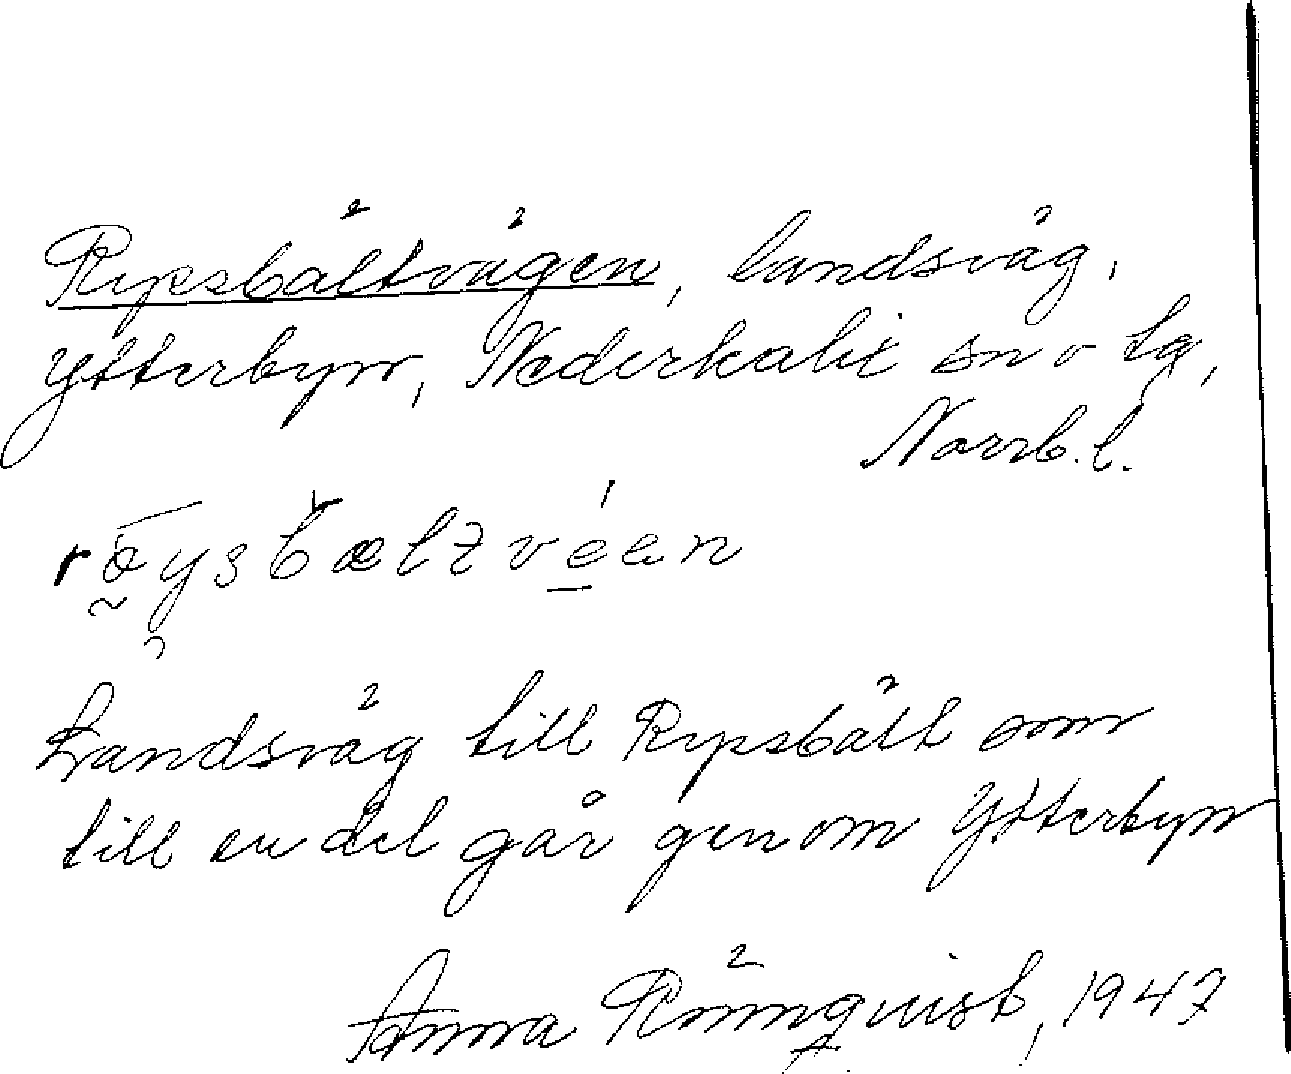 Rypsbältvägen, landsväg,
Ytterbyn, Nederkalix sn o tg,
Norrb. l.
röysbæltvéen
Landsväg till Rypsbält som
till en del går genom Ytterbyn
Anna Rönnquist, 1947